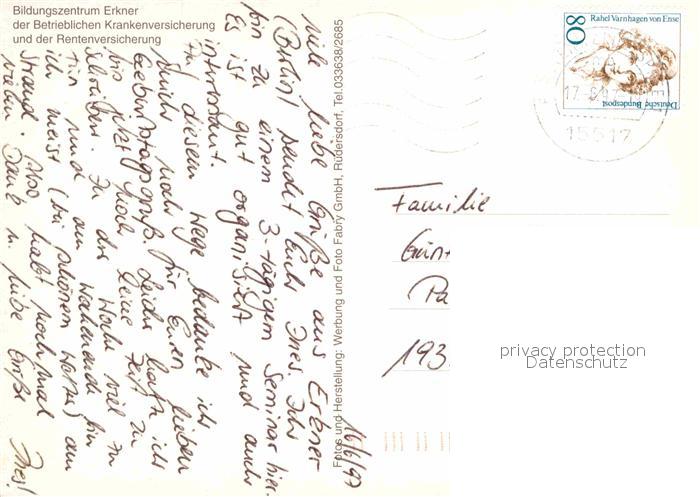 Bildungszentrum Erkner
der Betrieblichen Krankenversicherung
und der Rentenversicherung
Fotos und Herstellung: Werbung und Foto Fabry GmbH, Rüdersdorf, Tel.033638/2685
80
Rahel Varnhagen von Ense
Deutsche Bundespost
15517
16/6/97
viele liebe Grüße aus Erkner
(Berlin) sendet Euch Ines. Ich
bin zu einem 3-tägigem Seminar hier.
Es ist gut organisiert und auch
interessant.
Zu diesem Wege bedanke ich
mich noch für Euren lieben
Geburtstagsgruß. Leider hatte ich
bis jetzt noch keine Zeit zu
schreiben. In der Woche viel zu
tun und am Wochenende bin
ich meist (bei schönem Wetter) am
Strand. Also habt nochmal
vielen Dank u. liebe Grüße
Ines!
Familie
Gün
Pa
193
privacy protection
Datenschutz